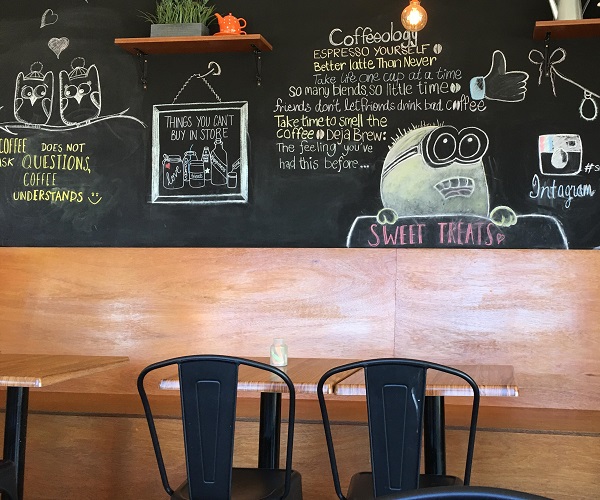 COFFEE DOES NOT
ASK QUESTIONS,
COFFEE
UNDERSTANDS
THINGS YOU CAN'T
BUY IN STORE
Love
Coffeeology
ESPRESSO YOURSELF
Better latte Than Never
Take life one cup at a time
so many blends, so little time
friends don't let friends drink bad coffee
Take time to smell the
coffee Deja Brew:
The feeling you've
had this before...
SWEET TREATS
Instagram